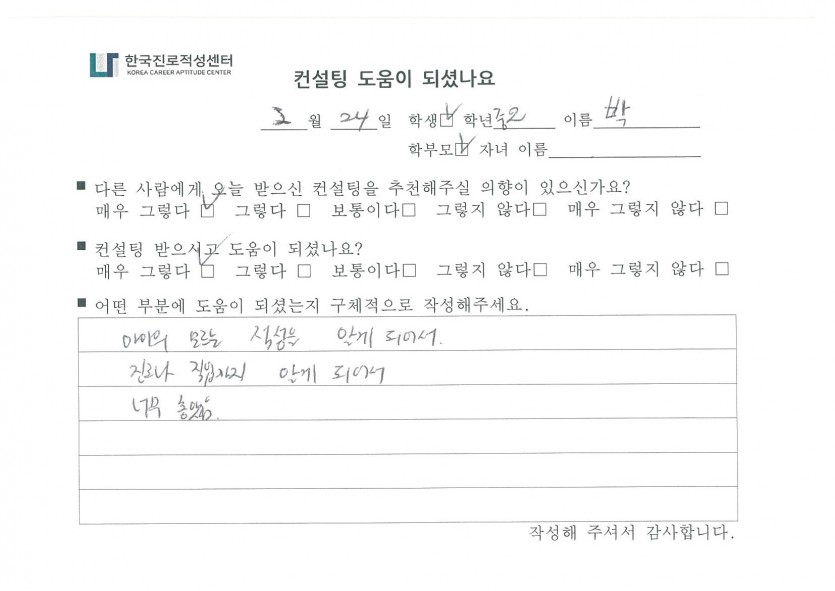 한국진로적성센터
KOREA CAREER APTITUDE CENTER
컨설팅 도움이 되셨나요
월 24일 학생☑ 학년 이름 박
학부모☑ 자녀 이름
■ 다른 사람에게 오늘 받으신 컨설팅을 추천해주실 의향이 있으신가요?
매우 그렇다 ☑ 그렇다 □ 보통이다□ 그렇지 않다□ 매우 그렇지 않다 □
■ 컨설팅 받으시고 도움이 되셨나요?
매우 그렇다 ☑ 그렇다 □ 보통이다□ 그렇지 않다□ 매우 그렇지 않다 □
■ 어떤 부분에 도움이 되셨는지 구체적으로 작성해주세요.
아이의 모르는 적성을 알게 되어서.
진로나 직업까지 알게 되어서
너무 좋았음.
작성해 주셔서 감사합니다.